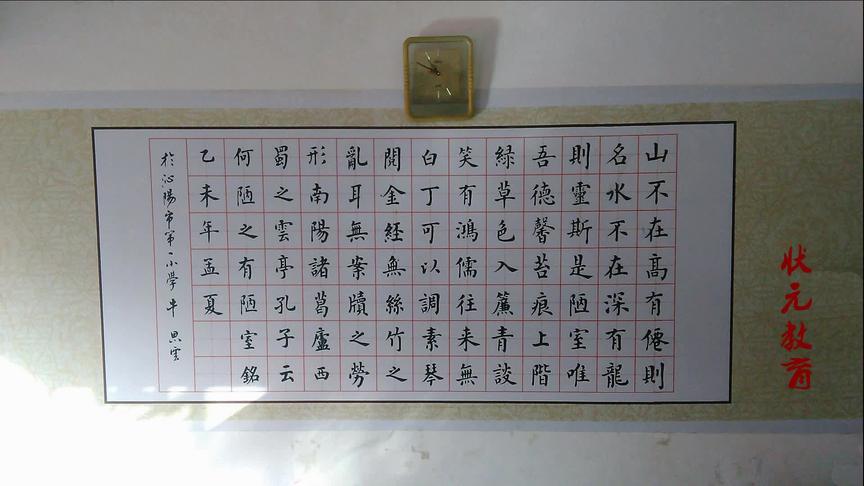 山不在髙有僊則
名水不在深有龍
則靈斯是陋室唯
吾德馨苔痕上階
緑草色入簾青談
笑有鴻儒往来無
白丁可以調素琴
閲金經無絲竹之
亂耳無案牘之勞
形南陽諸葛廬西
蜀之雲亭孔子云
何陋之有陋室銘
乙未年孟夏
於沁陽市第一小學牛思雲
状元教育